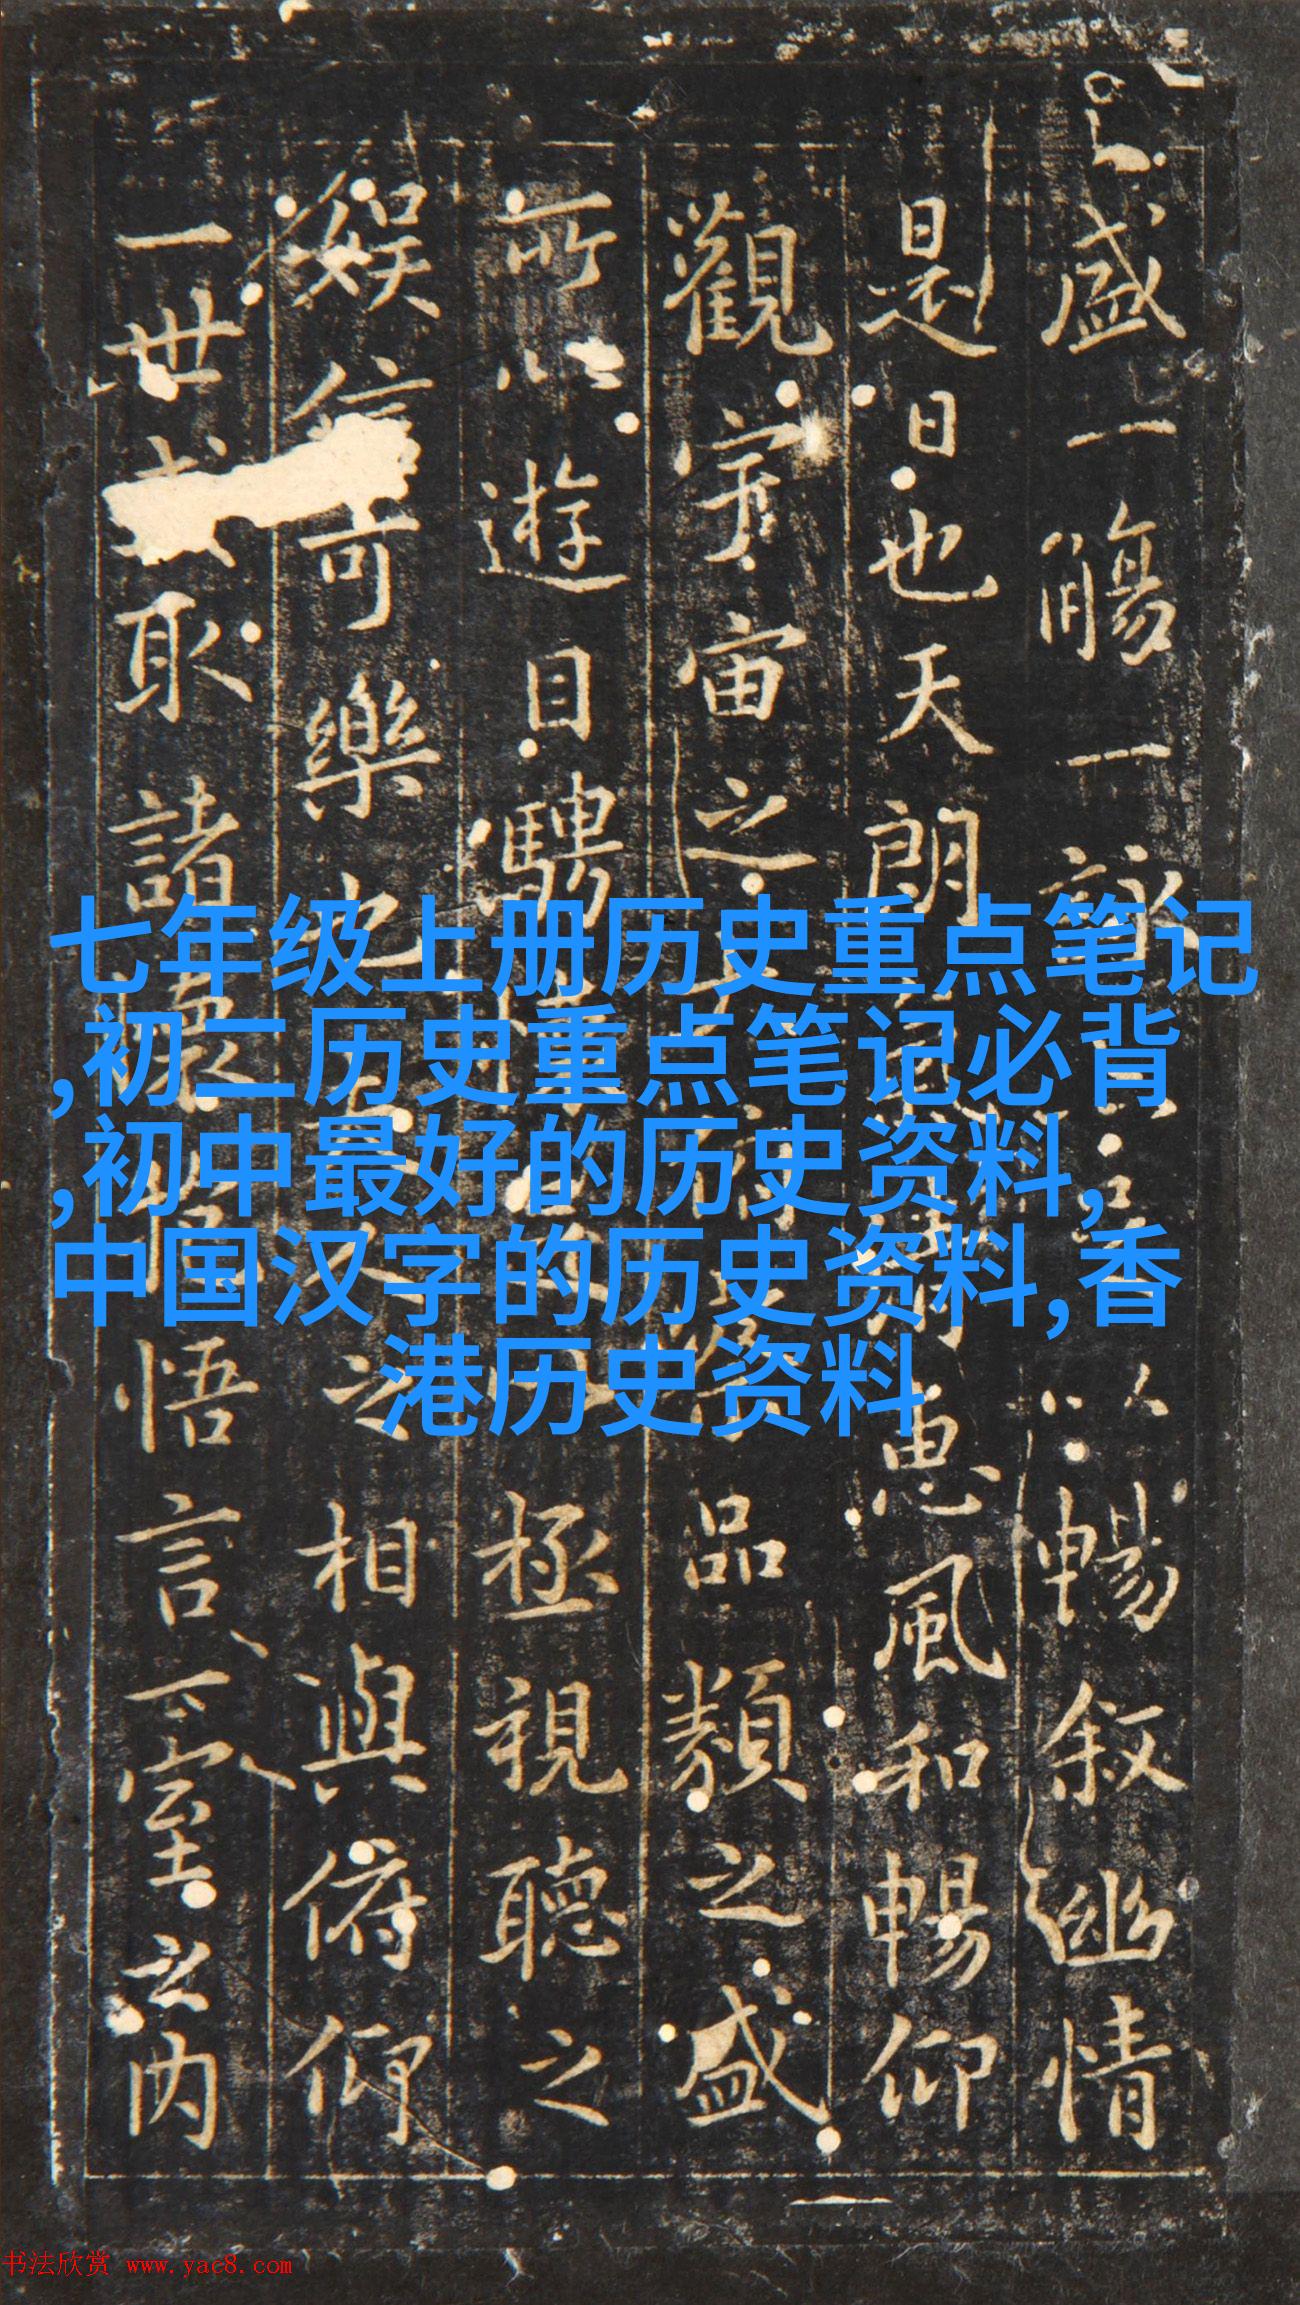 盛一觴一詠以暢叙幽情
是日也天朗惠風和暢仰
觀宇宙之俯察品類之盛
所以遊目騁極視聽之
娛信可樂也夫人之相與俯仰
一世或取諸懷抱悟言一室之内
七年级上册历史重点笔记
,初二历史重点笔记必背
,初中最好的历史资料,
中国汉字的历史资料,香
港历史资料
书法欣赏 www.yac8.com